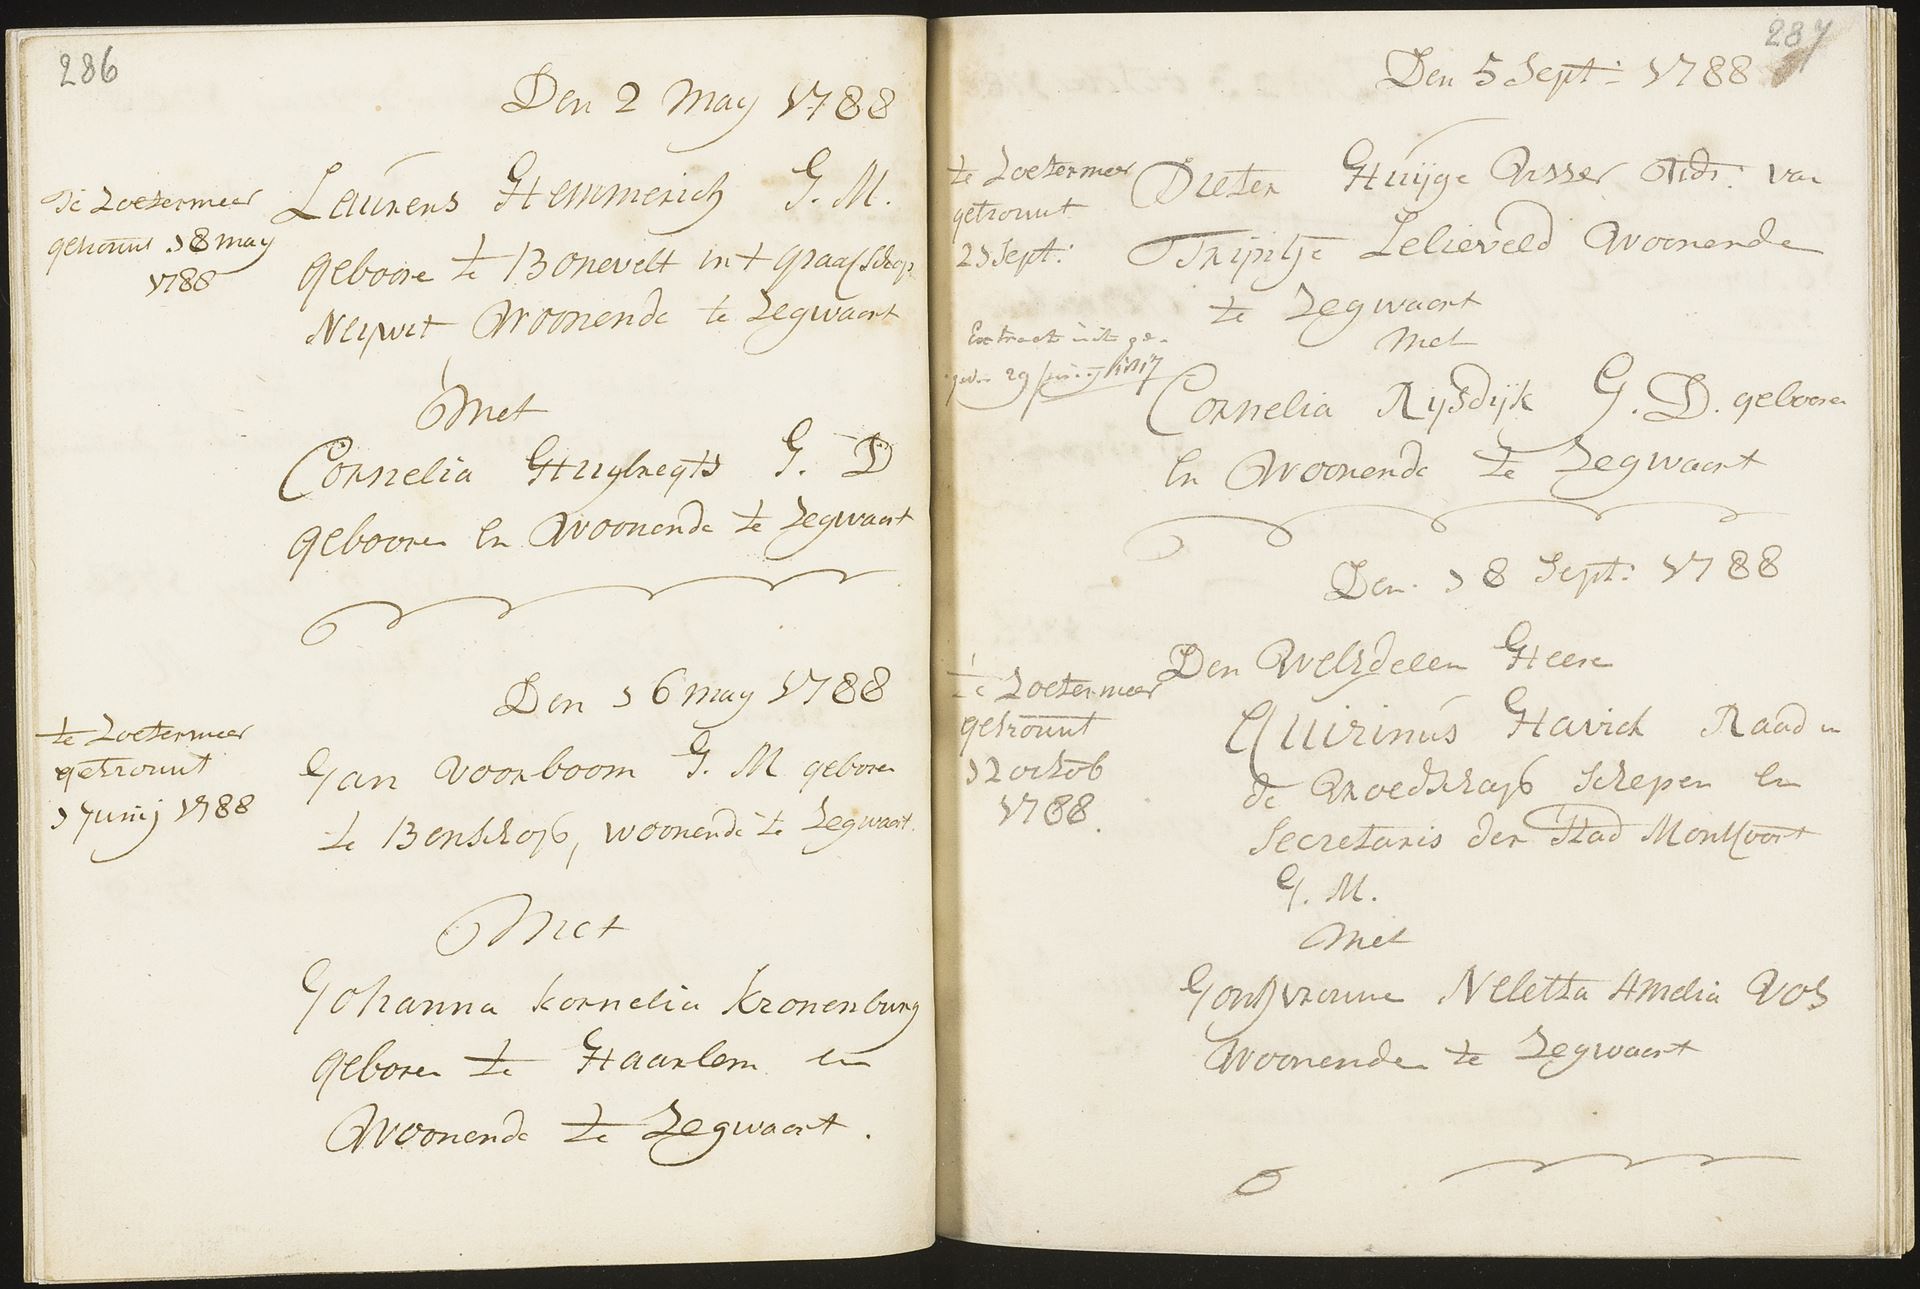 286
Den 2 May 1788
te Zoetermeer
getrouwt 18 may
1788
Laurens Hemmerich G. M.
geboore te Bonevelt in t graafschap
Neuwit Woonende te Zegwaart
Met
Cornelia Huijbregts G. D
gebooren En Woonende te Zegwaart
Den 16 may 1788
te Zoetermeer
getrouwt
1 Junij 1788
Jan Voorboom G. M geboren
te Benschop, woonende te Zegwaart.
Met
Johanna kornelia kronenburg
geboren te Haarlem en
Woonende te Zegwaart.
287
Den 5 Sept: 1788
te Zoetermeer
getrouwt
21 Sept:
Extract uit ge-
29 1817
Pieter Huijge Visser Wedr: van
Trijntje Lelieveld Woonende
te Zegwaart
Met
Cornelia Rijsdijk G. D. geboren
En Woonende te Zegwaart
Den 18 Sept: 1788
te Zoetermeer
getrouwt
12 octob
1788.
Den WelEdelen Heere
Quirinus Havick Raad in
de Vroedschap Schepen En
Secretaris der Stad Montfoort
G. M.
Met
Jonkvrouwe Neletta Amelia Vos
Woonende te Zegwaart